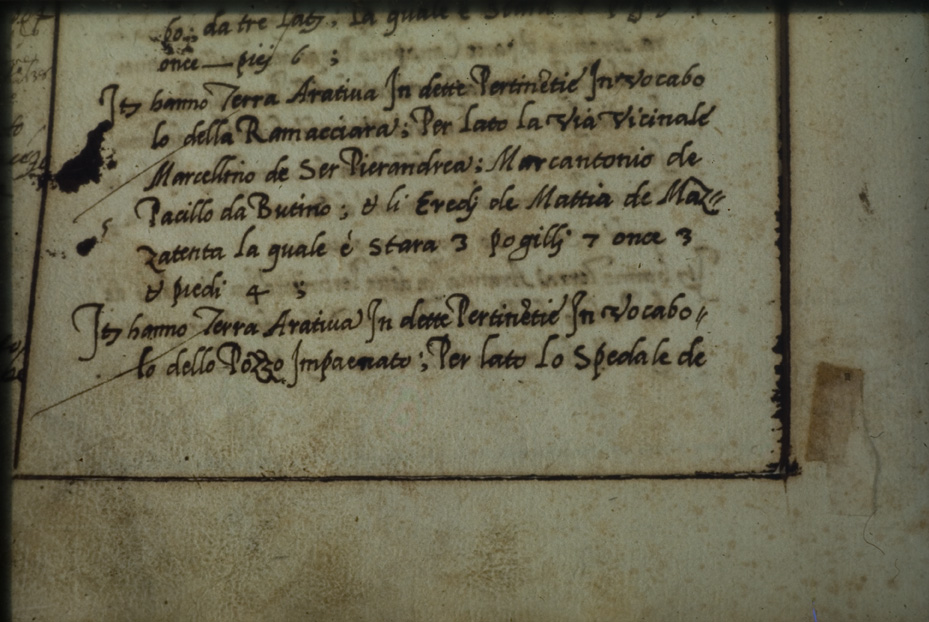 bo; da tre Latj; La quale è Stara
once — piej 6 ;
Itꝫ hanno Terra Aratiua In dette Pertinẽtie In Vocabo
lo della Ramacciara; Per Lato la Via Vicinale
Marcellino de Ser Pierandrea; Marcantonio de
Pacillo da Butino; & li Eredj de Mattia de Maz=
zatenta la quale è Stara 3 pogillj 7 once 3
& piedi 4 ;
Itꝫ hanno Terra Aratiua In dette Pertinẽtie In Vocabo=
lo dello Pozzo Impaenato; Per lato Lo Spedale de